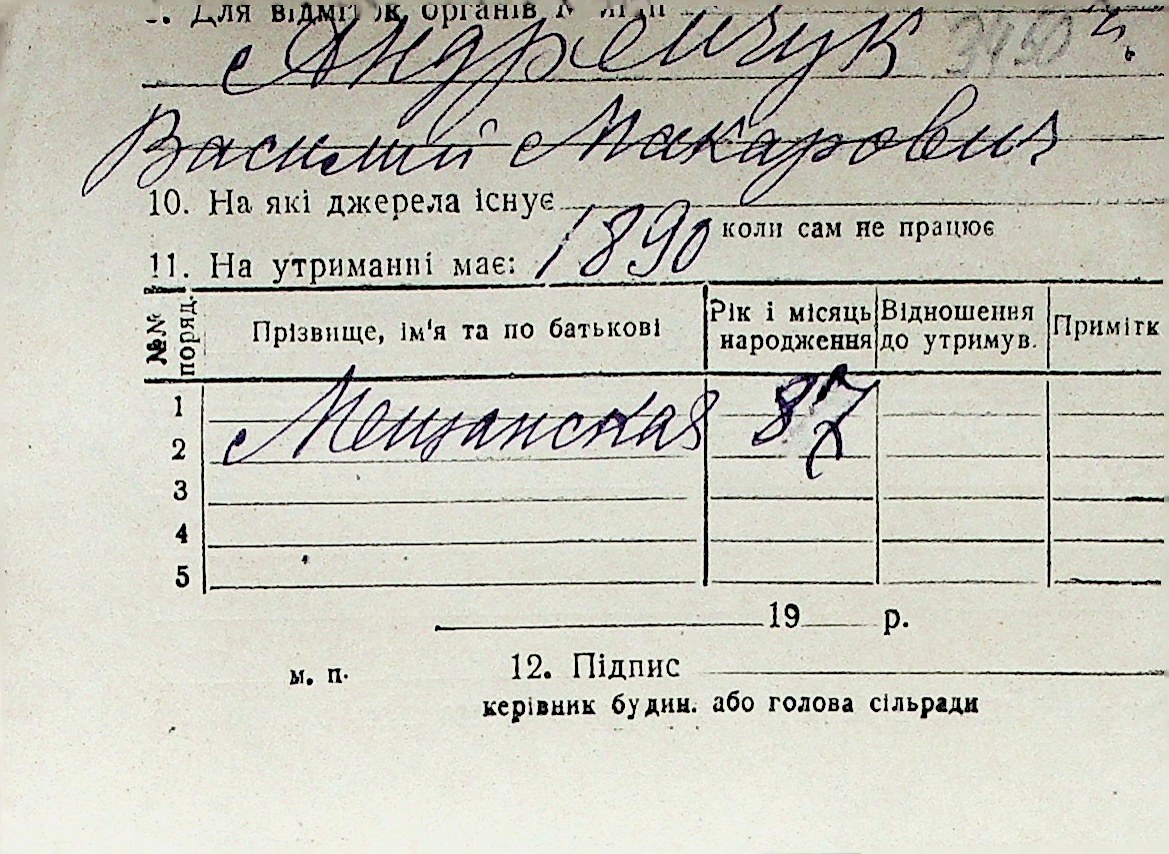 Для відміток органів
Андрейчук 3450 ч.
Василий Макарович
10. На які джерела існує
1890 коли сам не працює
11. На утриманні має:
№№ поряд. Прізвище, ім'я та по батькові Рік і місяць народження Відношення до утримув. Примітк
1
Мещанская 87
2
3
4
5
19 р.
м. п. 12. Підпис
керівник будин. або голова сільради